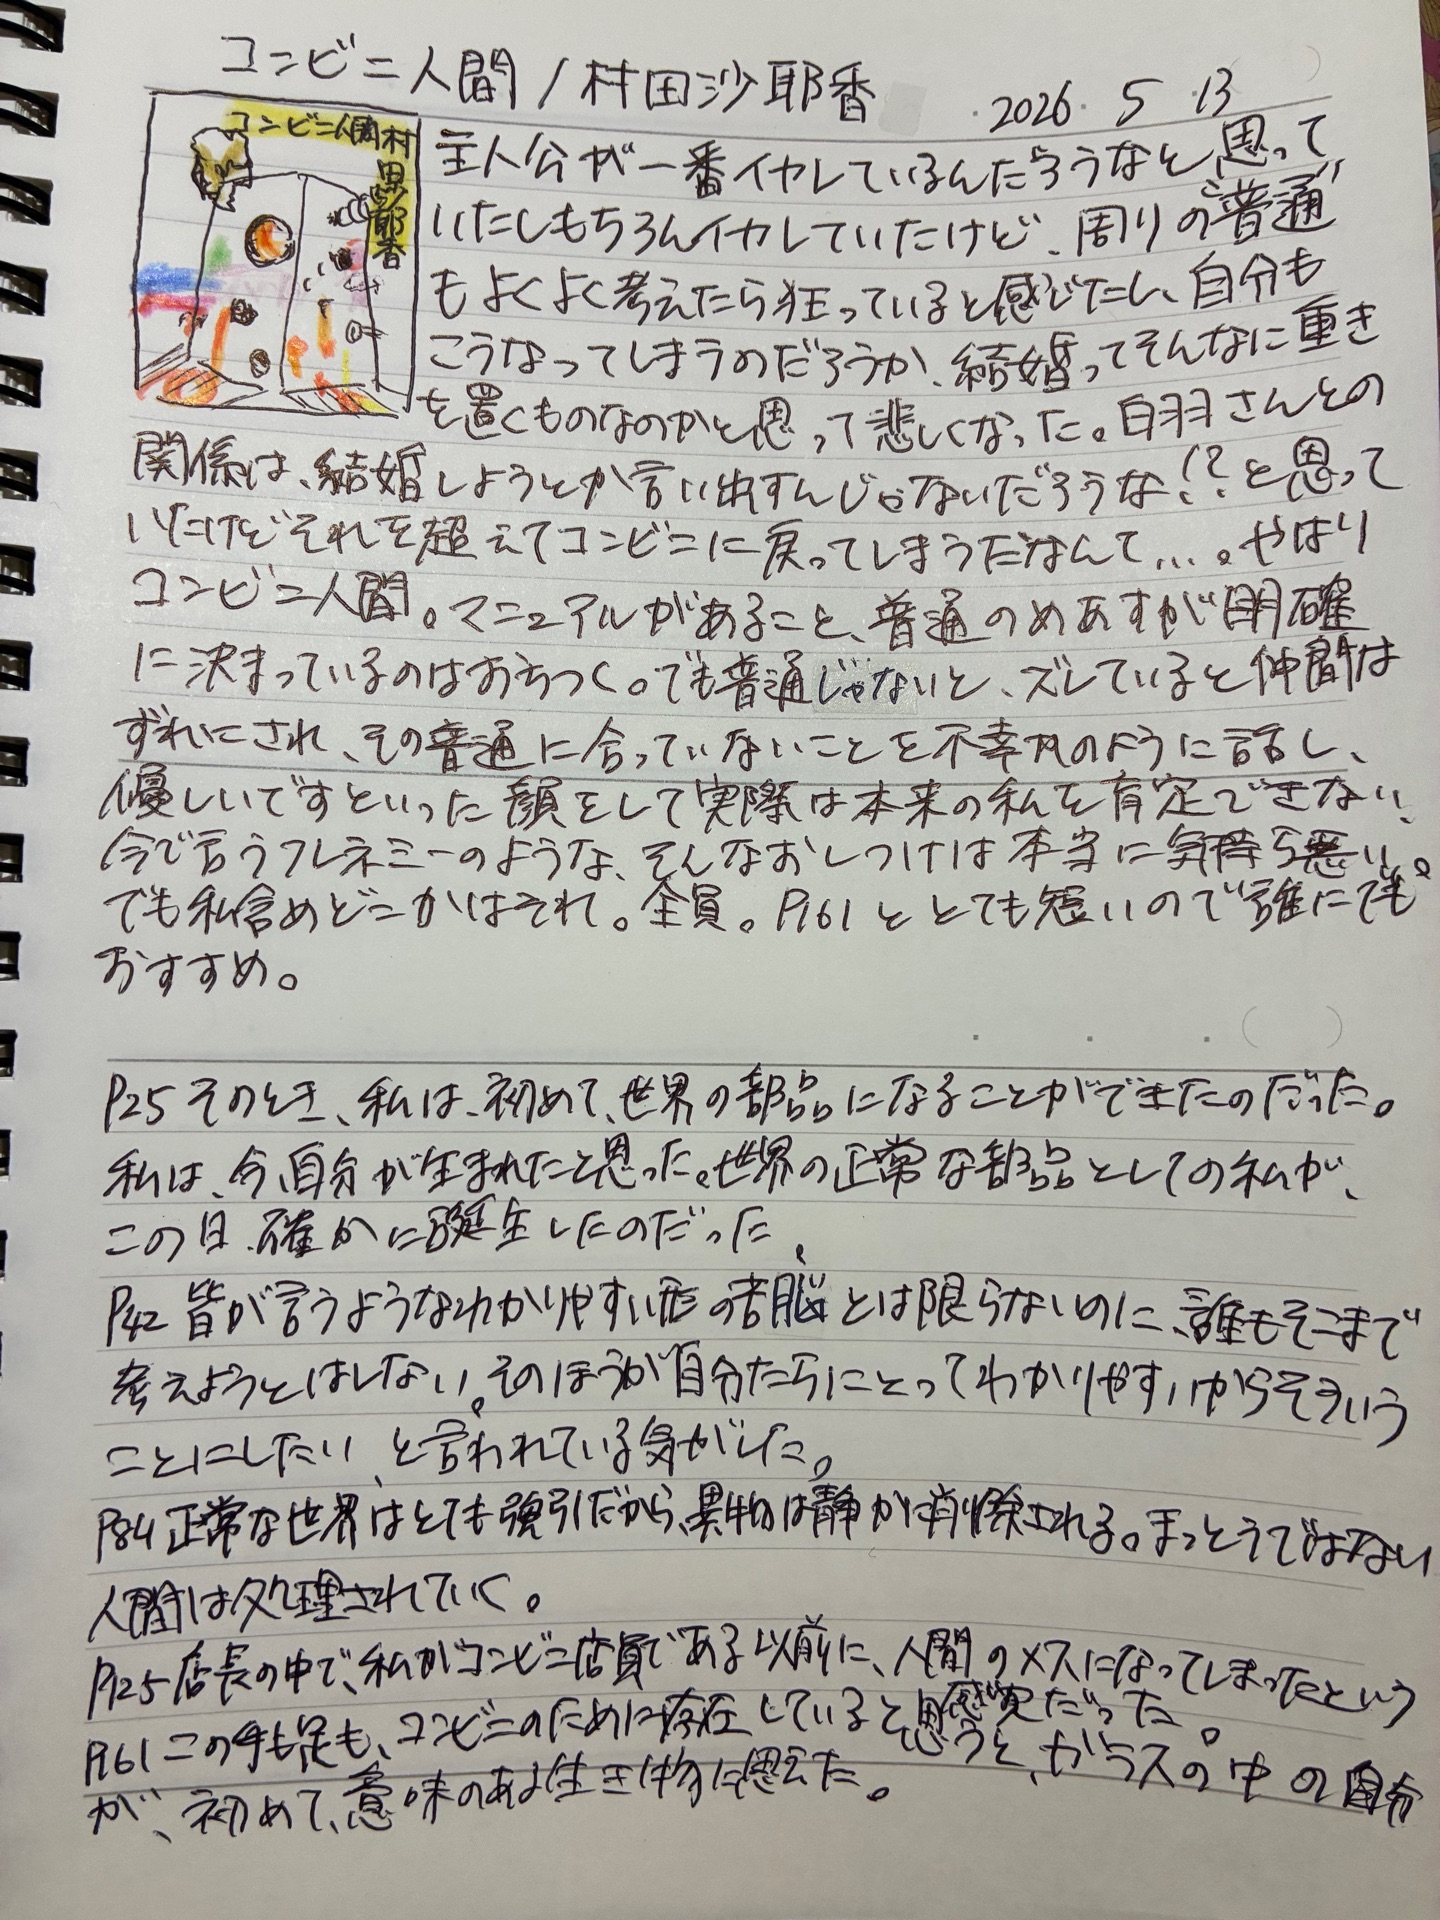 コンビニ人間/村田沙耶香
2026. 5. 13
コンビニ人間村
田沙耶香
主人公が一番イヤしているんだろうなと思って
いたしもちろんイカしていたけど、周りの"普通"
もよくよく考えたら狂っていると感じたし、自分も
こうなってしまうのだろうか、結婚ってそんなに重き
を置くものなのかと思って悲しくなった。白羽さんとの
関係は、結婚しようとか言い出すんじゃないだろうな!?と思って
いたけどそれを超えてコンビニに戻ってしまうだなんて...。やはり
コンビニ人間。マニュアルがあること、普通のめあすが明確
に決まっているのはおちつく。でも普通じゃないと、ズレていると仲間は
ずれにされ、その普通に合っていないことを不幸かのように話し、
優しいですといった顔をして実際は本来の私を肯定できない、
今で言うフレネミーのような、そんなおしつけは本当に気持ち悪い。
でも私含めどこかはそれ。全員。P161ととても短いので誰にでも
おすすめ。
P25 そのとき、私は、初めて、世界の部品になることができたのだった。
私は、今、自分が生まれたと思った。世界の正常な部品としての私が、
この日、確かに誕生したのだった。
P42 皆が言うようなわかりやすい形の苦悩とは限らないのに、誰もそこまで
考えようとはしない。そのほうが自分たちにとってわかりやすいからそういう
ことにしたい、と言われている気がした。
P84 正常な世界はとても強引だから、異物は静かに削除される。まっとうではない
人間は処理されていく。
P125 店長の中で、私がコンビニ店員である以前に、人間のメスになってしまったという
感覚だった。
P161 この手も足も、コンビニのために存在していると思うと、ガラスの中の自分
が、初めて、意味のある生き物に思えた。